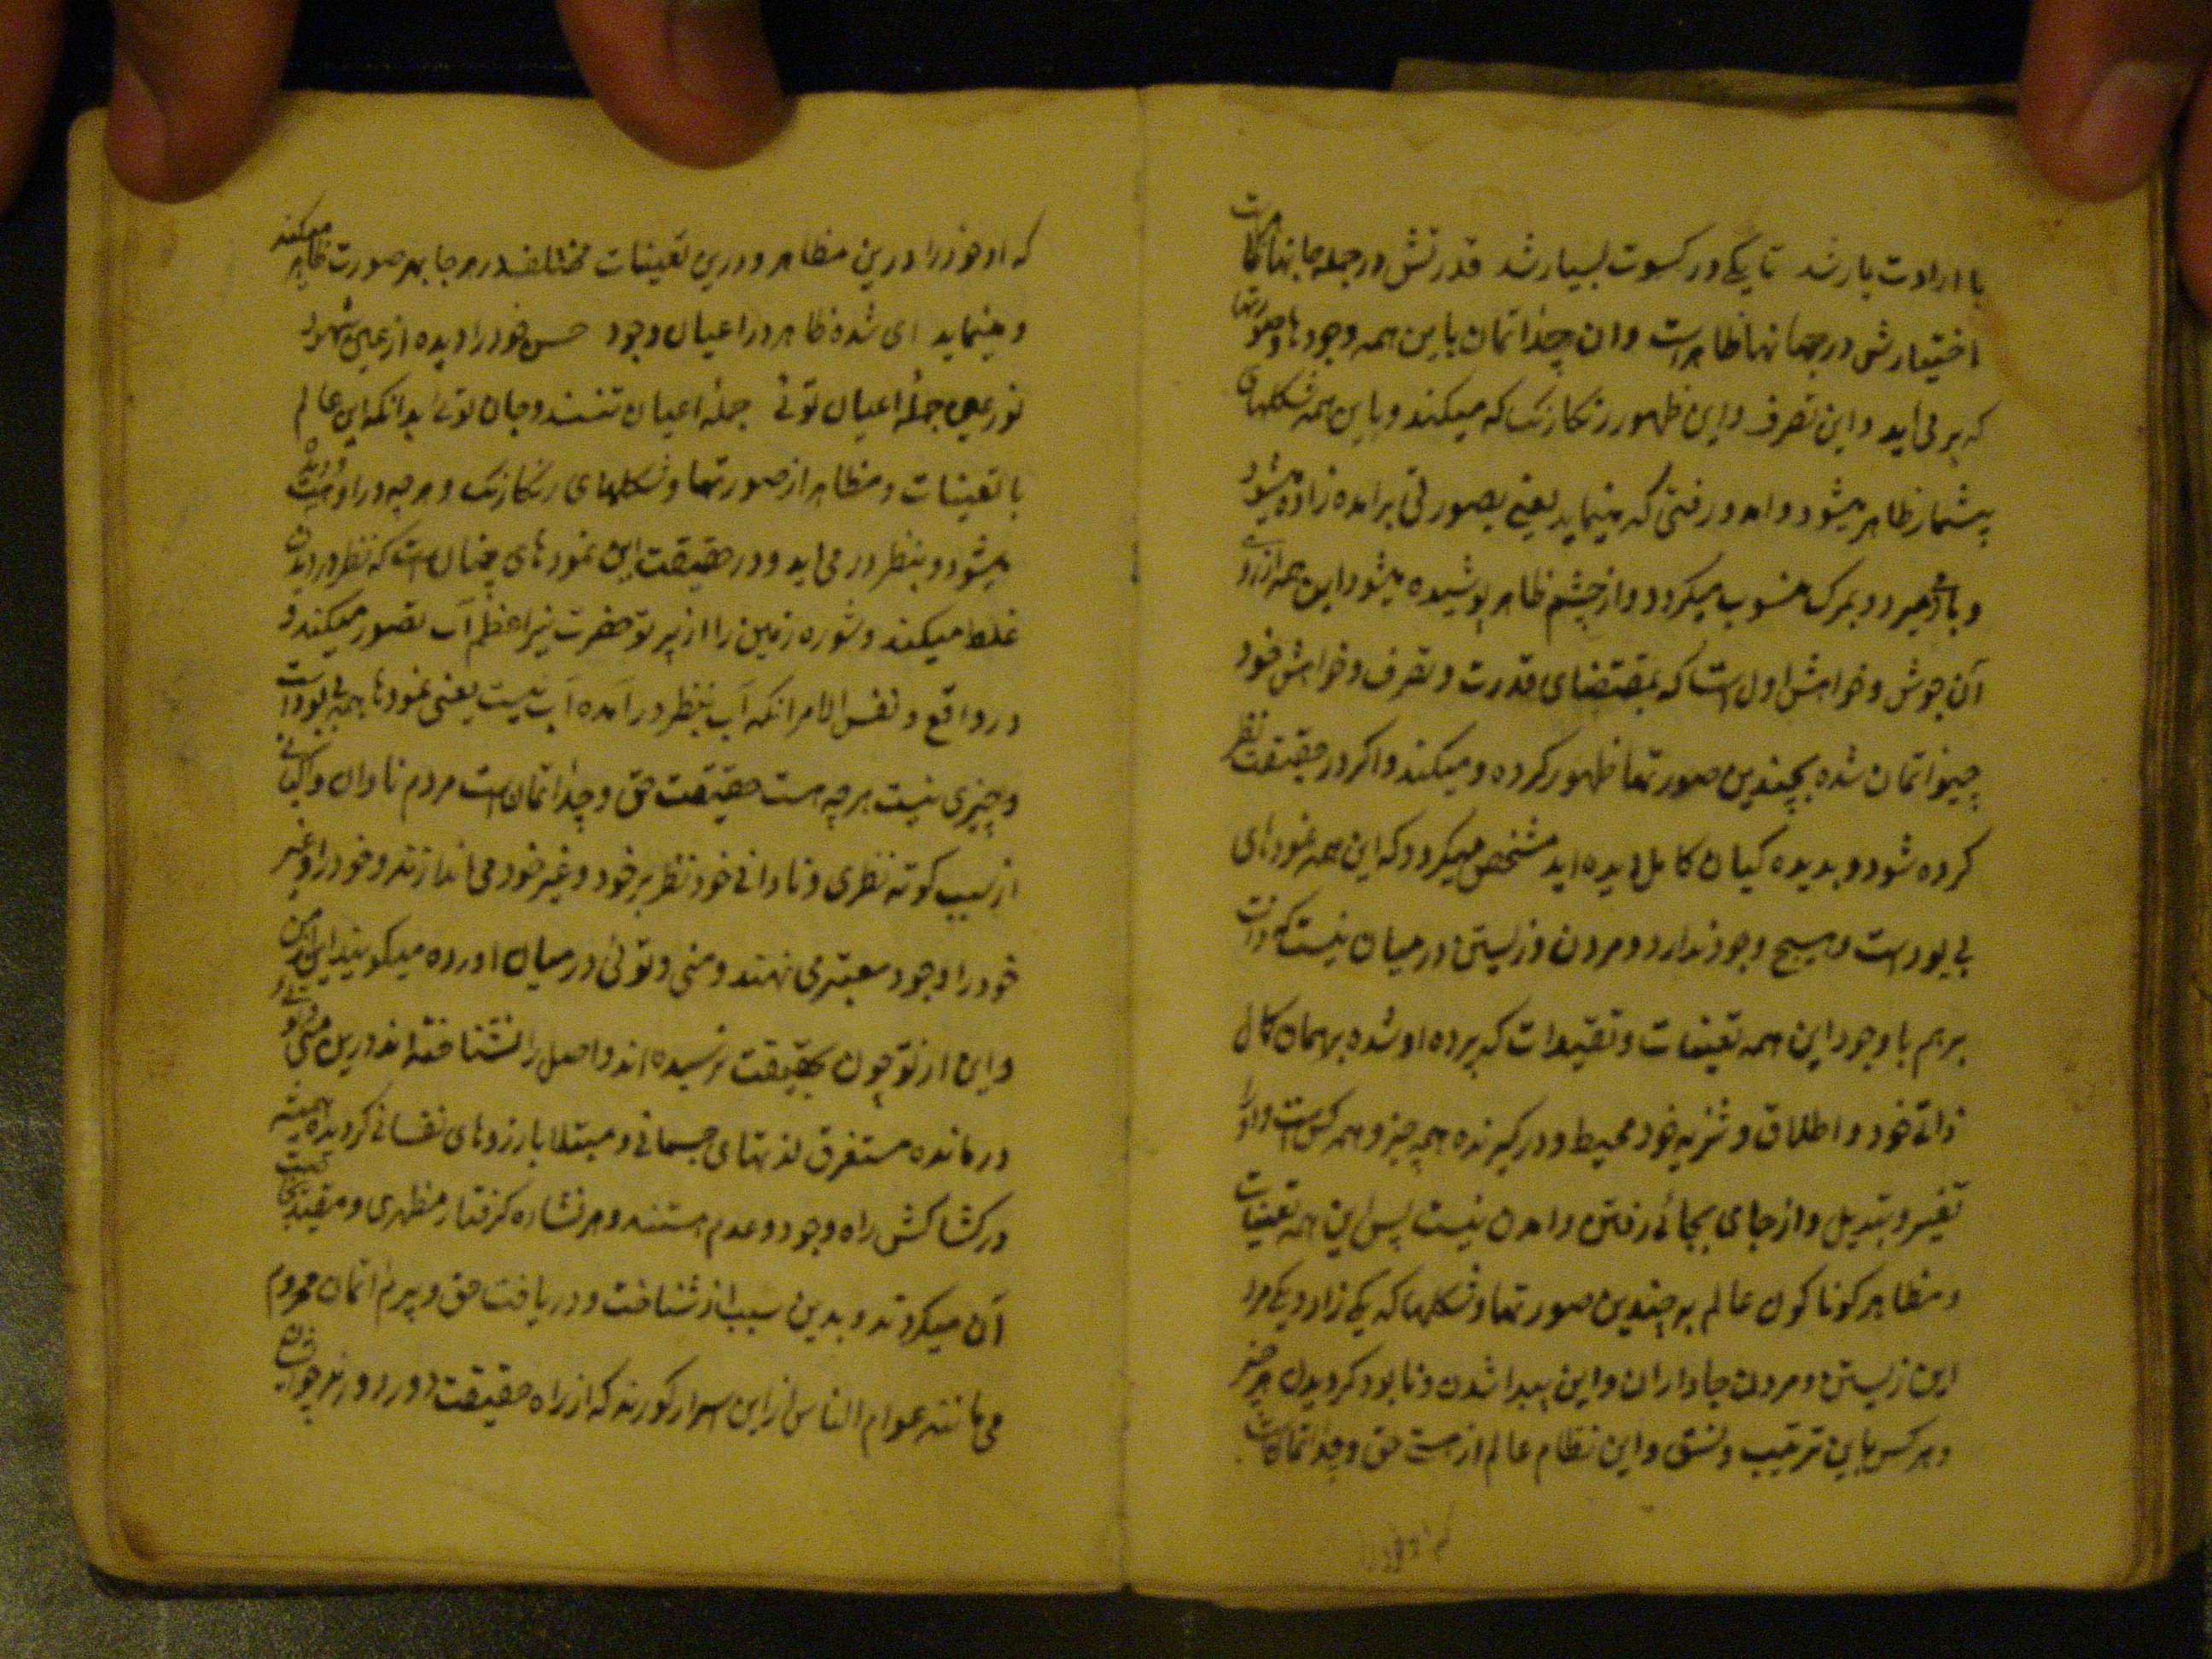 با ارادت یار شد تا یکی در کسوت بسیار شد قدرتش در جمله جانها
اختیارش در جهانها ظاهر است وان چدانمان با این همه وجودها و صورتها
که بر می آید و این تصرف و این ظهور رنکارنک که میکند و با این همه شکلهای
بیشمار ظاهر میشود و آمد و رفتی که مینماید یعنی بصورتی برآمده زاده میشود
و باز میرد و بمرک منسوب میکردد و از چشم ظاهر پوشیده میشود این همه از روی
آن جوش و خواهش اول است که بمقتضای قدرت و تصرف و خواهش خود
جیواتمان شده بچندین صورتها ظهور کرده و میکند و اکر در حقیقت نظر
کرده شود و بدیده کیان کامل دیده اید مشخص میکردد که این همه نمودهای
بی بودست و هیچ وجود ندارد و مردن و زیستی درمیان نیست که ذات
برهم با وجود این همه تعینات و تقیدات که پرده او شده بر همان کمال
ذاتی خود و اطلاق و تنزیه خود محیط و در کیرنده همه چیز و همه کس است و او را
تغیر و تبدیل و از جای بجائی رفتن و آمدن نیست پس این همه تعینات
و مظاهر کوناکون عالم بر چندین صورتها و شکلها که یکی زاد و یکی مرد
این زیستن و مردن جانداران و این پیدا شدن و نابود کردیدن هر چیز
و هر کس باین ترتیب و نسق و این نظام عالم از هست حق و چدانمانست
که او خود را
که او خود را درین مظاهر و درین تعینات مختلف در هر جا بهر صورت ظاهر میکند
و مینماید ای شده ظاهر در اعیان وجود حسن خود را دیده از عین شهود
نور عین جمله اعیان توئی جمله اعیان تنند و جان توئی بدانکه این عالم
با تعینات و مظاهر از صورتها و شکلهای رنکارنک و هر چه در اوست دیده
میشود و بنظر در می اید و در حقیقت این نمودهای چنان است که نظر در دیدن
غلط میکند و شوره زمین را از پرتو حضرت نیر اعظم آب تصور میکند و
در واقع و نفس الامر انکه آب بنظر در آمده آب نیست یعنی نمودها همه بی بود است
و چیزی نیست هر چه هست حقیقت حق و چدانمان است مردم نادان و
از سبب کوته نظری و نادانی خود نظر بر خود و غیر خود می اندازند و خود را و غیر
خود را وجود معتبر می نهند و منی و توئی درمیان اورده میکویند این از من
و این از تو چون بحقیقت نرسیده اند و اصل را نشناخته اند درین منی و توئی
درمانده مستغرق لذتهای جسمانی و مبتلا بارزوهای نفسانی کردیده همیشه
در کشاکش راه وجود و عدم هستند و هر نشاره کرفتار مظهری و مقید
آن میکردند و بدین سبب از شناخت و دریافت حق و پرم اتمان محروم
می مانند عوام الناس از این اسرار کورند که از راه حقیقت دور دورند